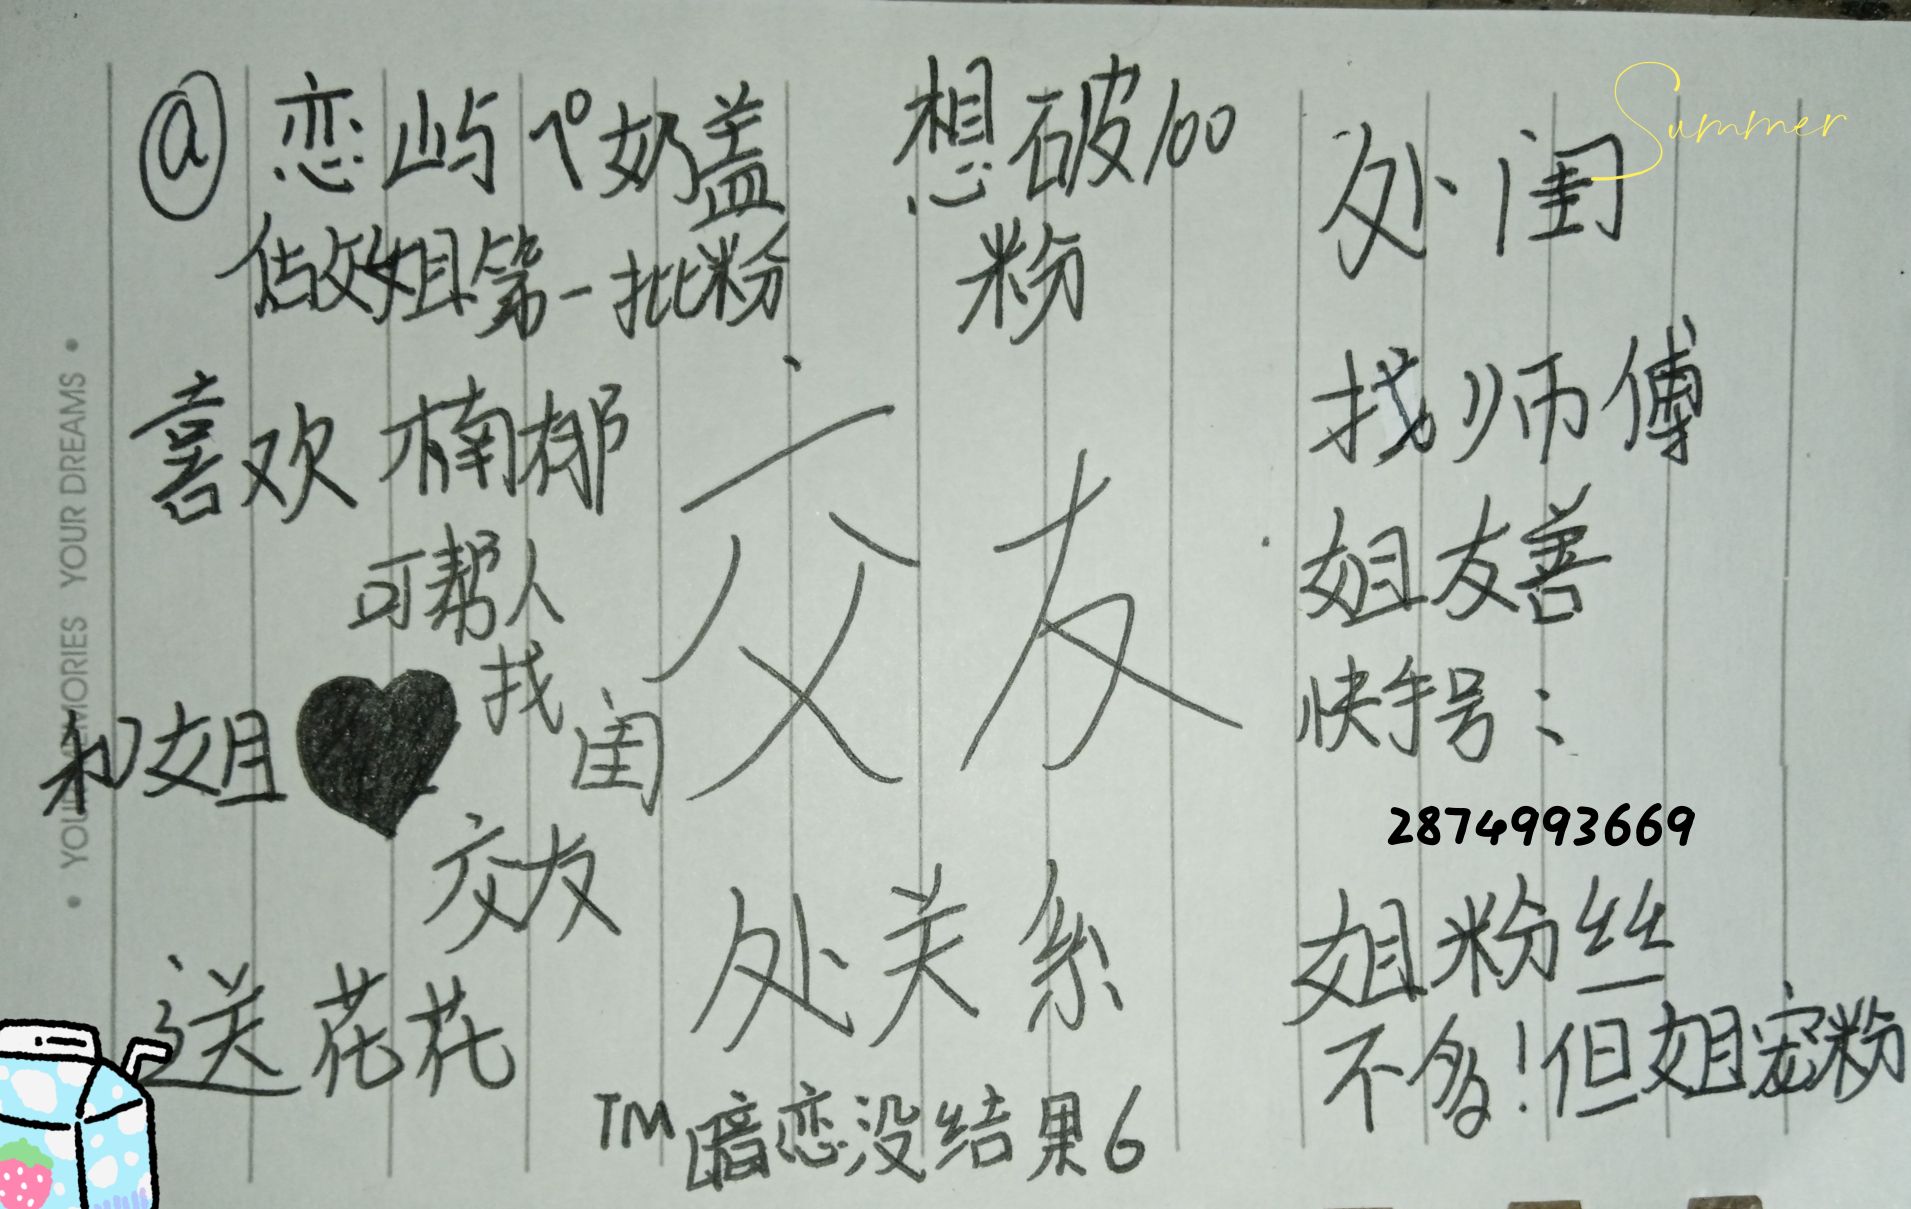 @恋屿ペ奶盖
做姐第一批粉
喜欢楠郁
可帮人
找
闺
和姐
交友
送花花
想破100
粉
交友
处关系
TM暗恋没结果6
Summer
处闺
找师傅
姐友善
快手号：
2874993669
姐粉丝
不多！但姐宠粉
• YOUR MEMORIES YOUR DREAMS •